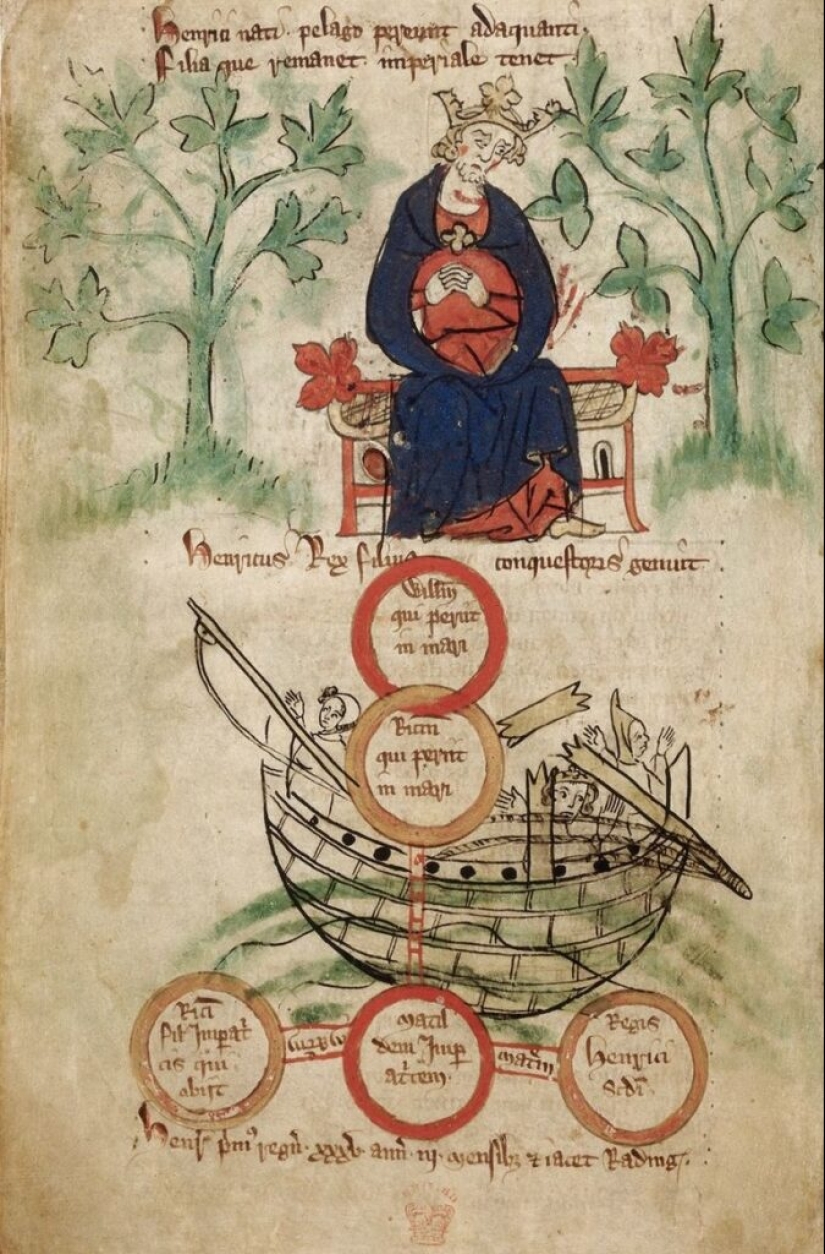 Henrici nati · pelago pereunt adaquanti
Filia que remanet · imperiale tenet
Henricus Rex filius conquestoris genuit
Willm
qui perit
in mari
Ricm
qui perit
in mari
Rici
fil Imperat
cis qui
obijt
Matil
dem Imp
atcem
matrem
Regis
Henrici
Scdi
Henr pm' regn' xxxv ann' iij mensibz & iacet Rading